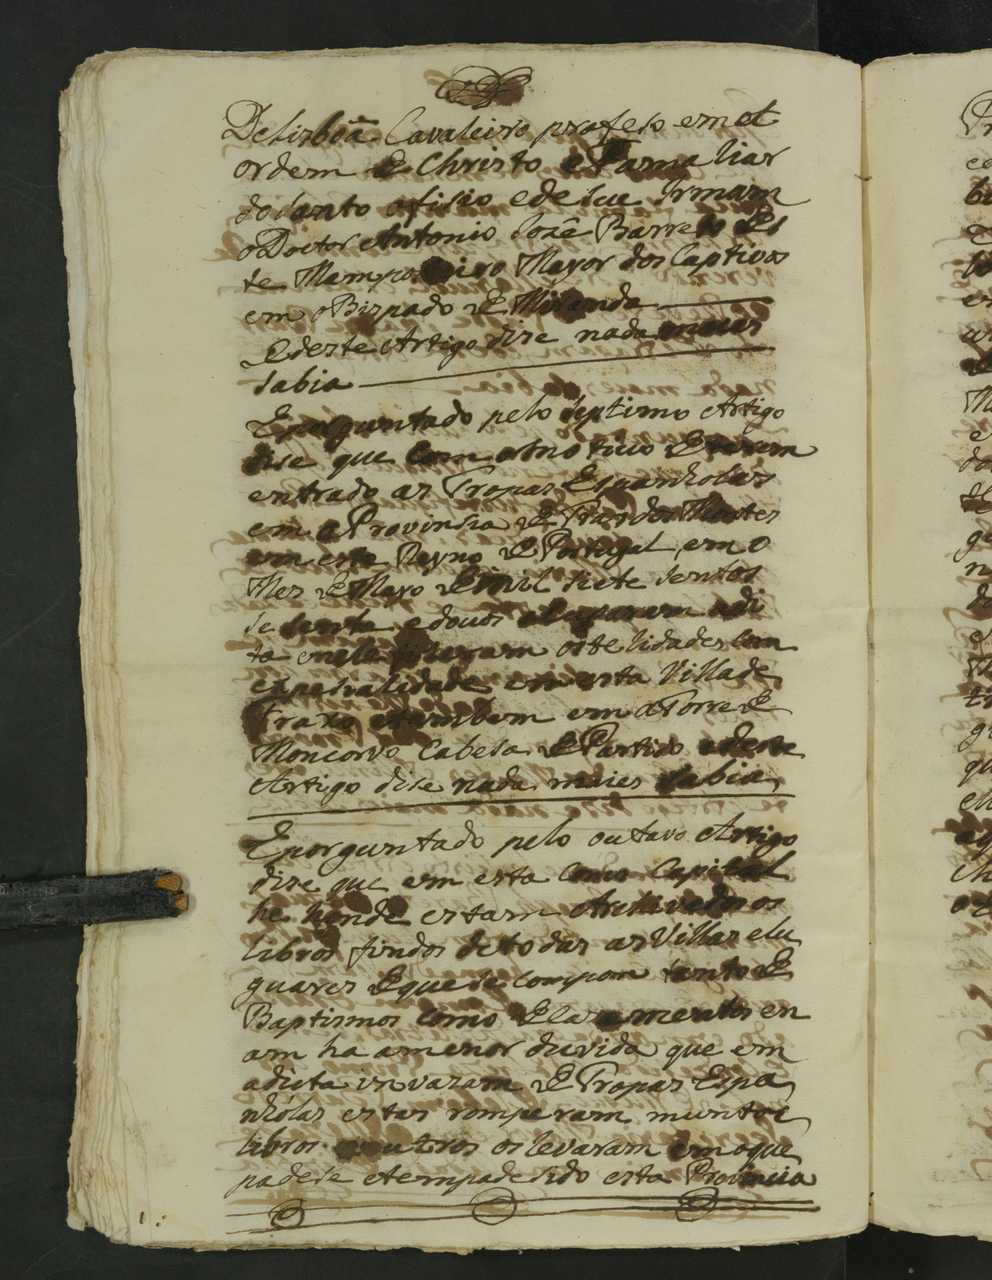 De Lisboâ Cavaleiro profeso em et
ordem de Christo e Famaliar
do santo ofisio e de seu Irmam
o Doctor Antonio Jozê Barreto Es
te Mamposteiro Mayor dos Captivos
em o Bispado de Miranda
E deste Artigo dise nada maies
sabia
E porguntado pelo septimo Artigo
dise que com o motivo de terem
entrado as Tropas Espanholas
em a Provinsia de Tras dos Montes
em este Reyno de Portugal em o
Mes de Mayo de mil siete sentos
se senta e douos ocuparam a di
ta e nela fizeram ostelidades com
espesialidade em esta Villa de
Fraxo e tambem em a Torre de
Moncorvo Cabesa de Partido e deste
Artigo dise nada maies sabia
E porguntado pelo outavo Artigo
dise que em esta como Capital
he honde estam Archivados os
libros findos de todas as Villas e lu
guares de que se compom tanto de
Baptismos como de Cazamentos e n
am ha a menor duvida que em
a dicta invazam de Tropas Espa
nholas estas romperam muntos
libros e outros os levaram em o que
padese e tem padesido esta Provincia